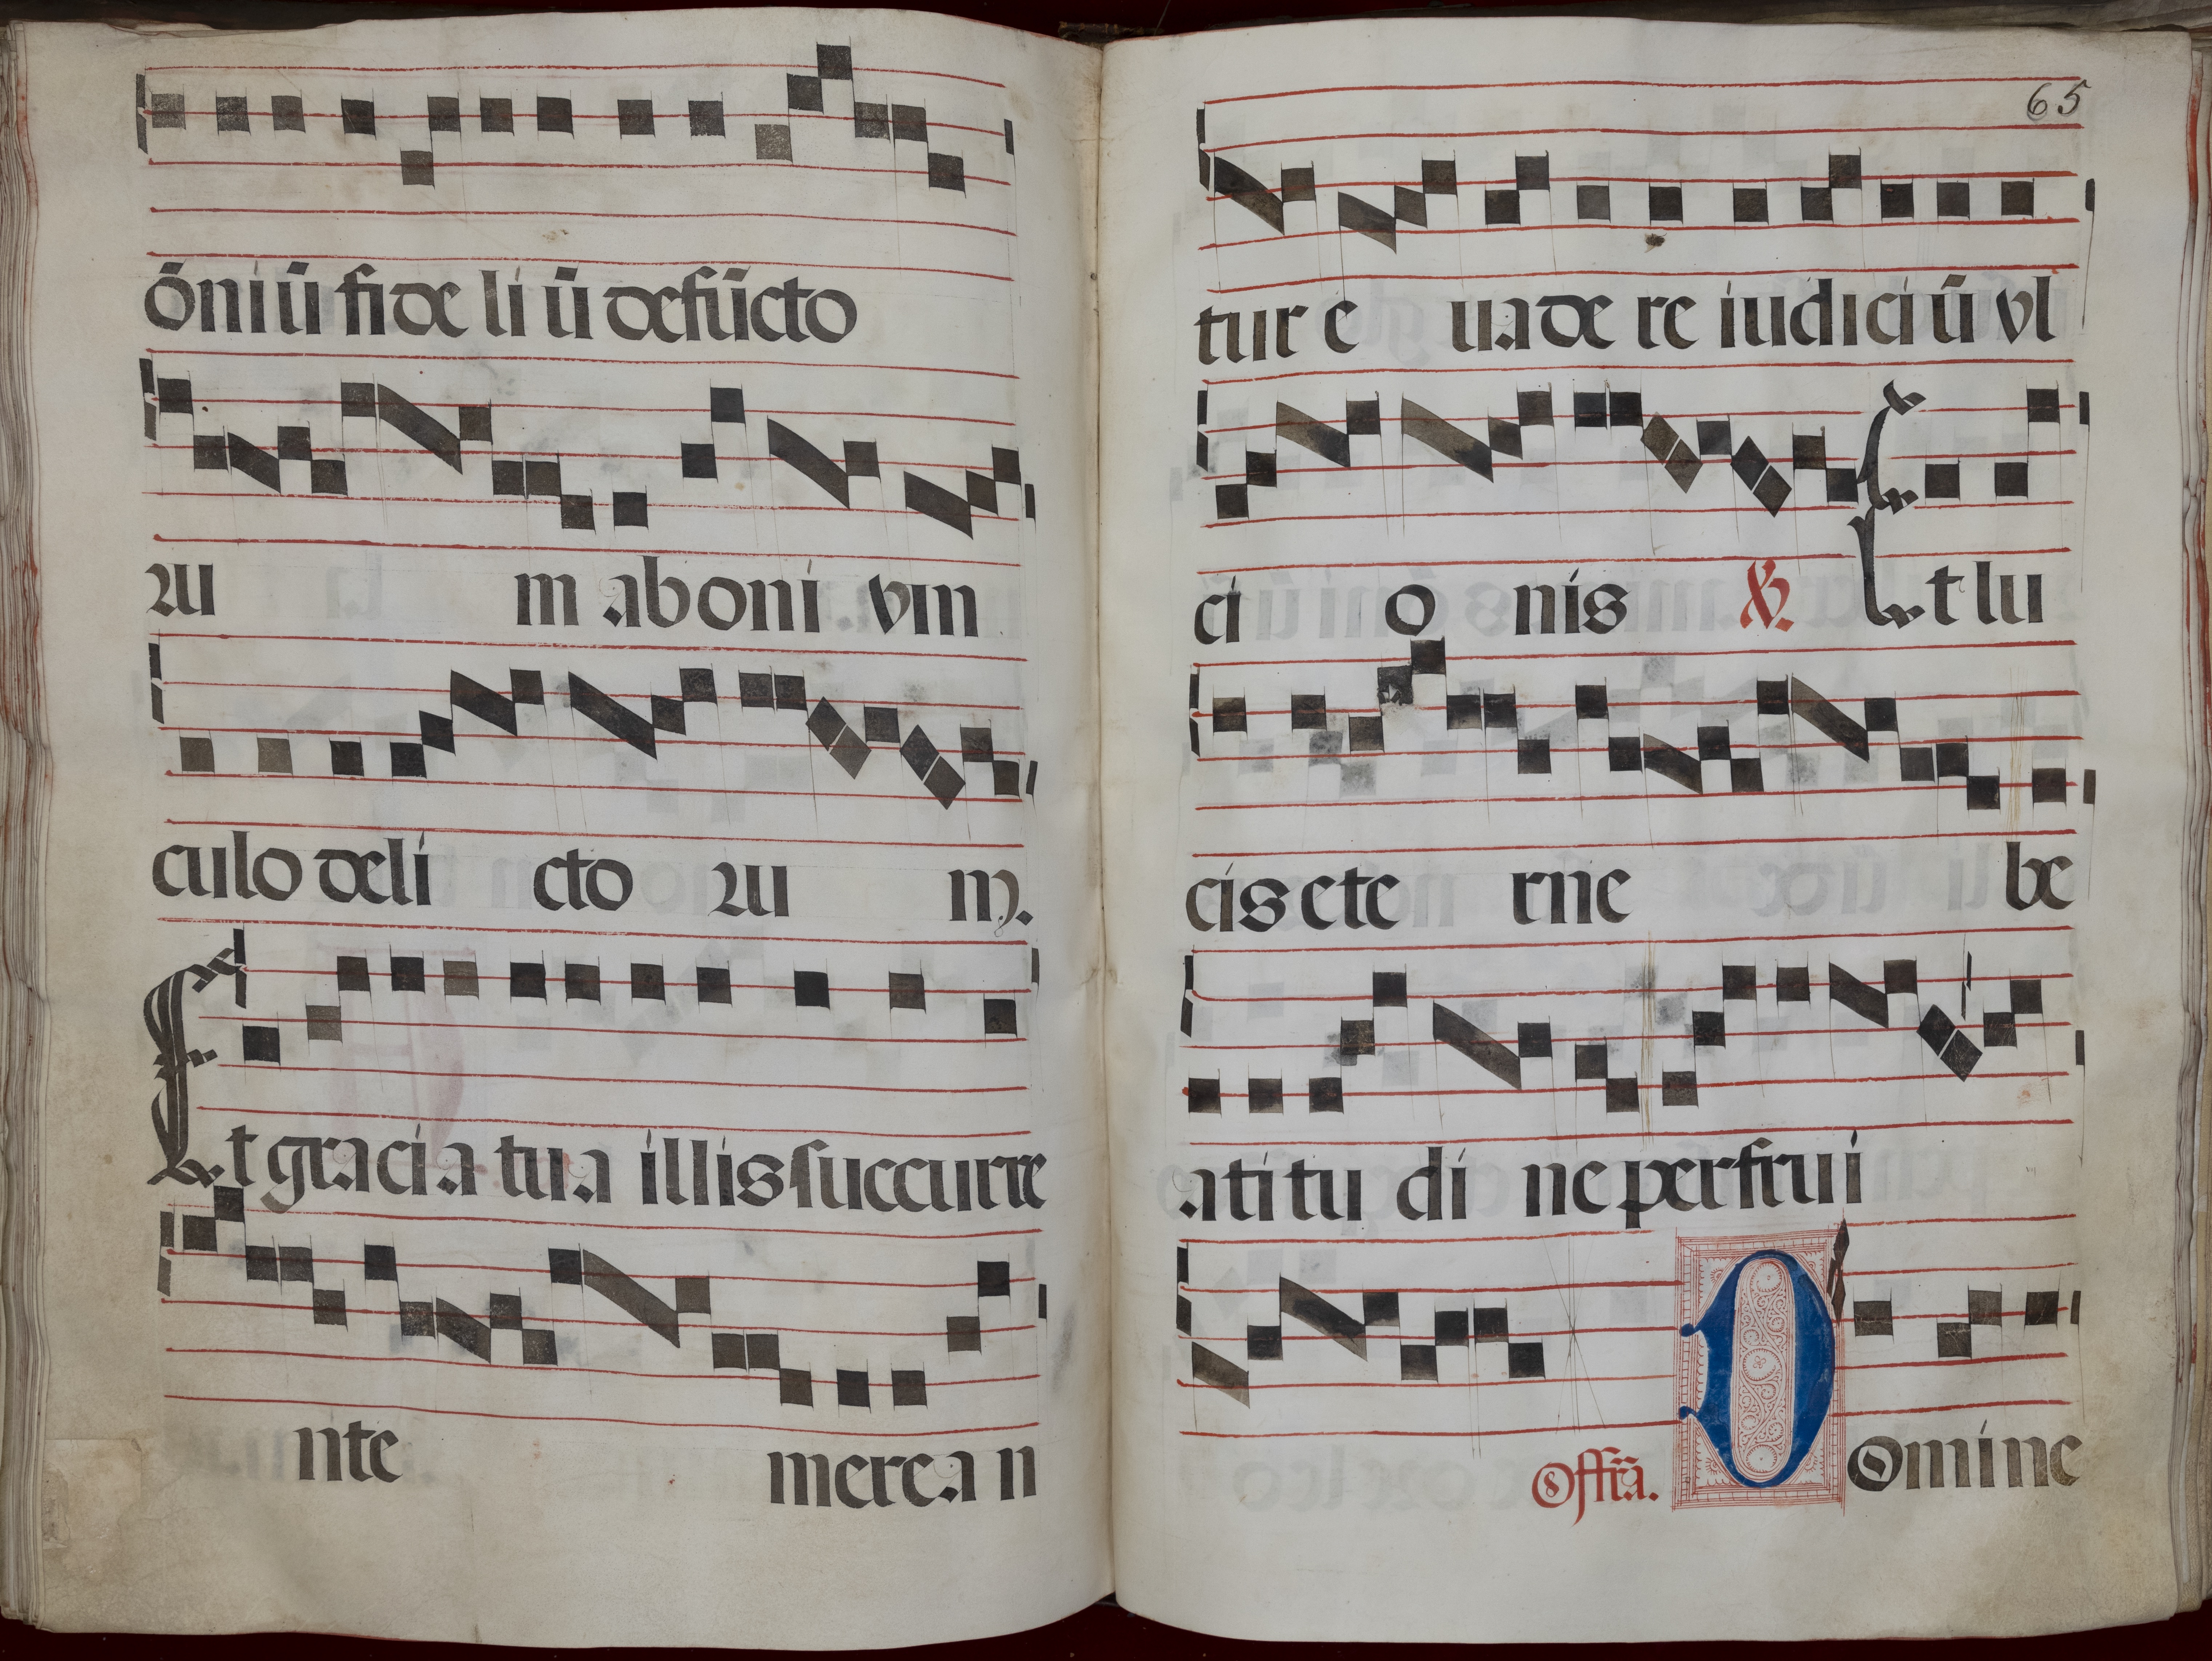 õniũ fide li ũ defũcto
ꝛu m ab oni vin
culo deli cto ꝛu m.
Et gracia tua illis succurre
nte merea n
65
tur e uade re iudiciũ vl
ci o nis ℣. Et lu
cis ete rne be
atitu di ne perfrui
Offr̃a. Domine